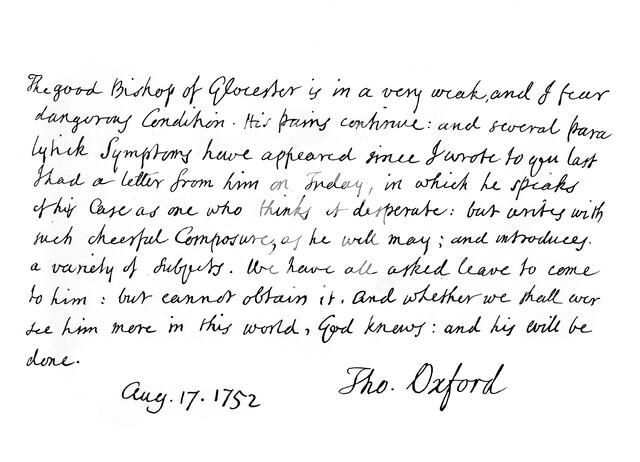 The good Bishop of Glocester is in a very weak, and I fear
dangerous Condition. His pains continue: and several para
lytick Symptoms have appeared since I wrote to you last
I had a letter from him on Friday, in which he speaks
of his Case as one who thinks it desperate: but writes with
such cheerful Composure, as he well may; and introduces.
a variety of Subjects. We have all asked leave to come
to him: but cannot obtain it. And whether we shall ever
see him more in this world, God knows: and his will be
done.
Aug. 17. 1752 Tho. Oxford